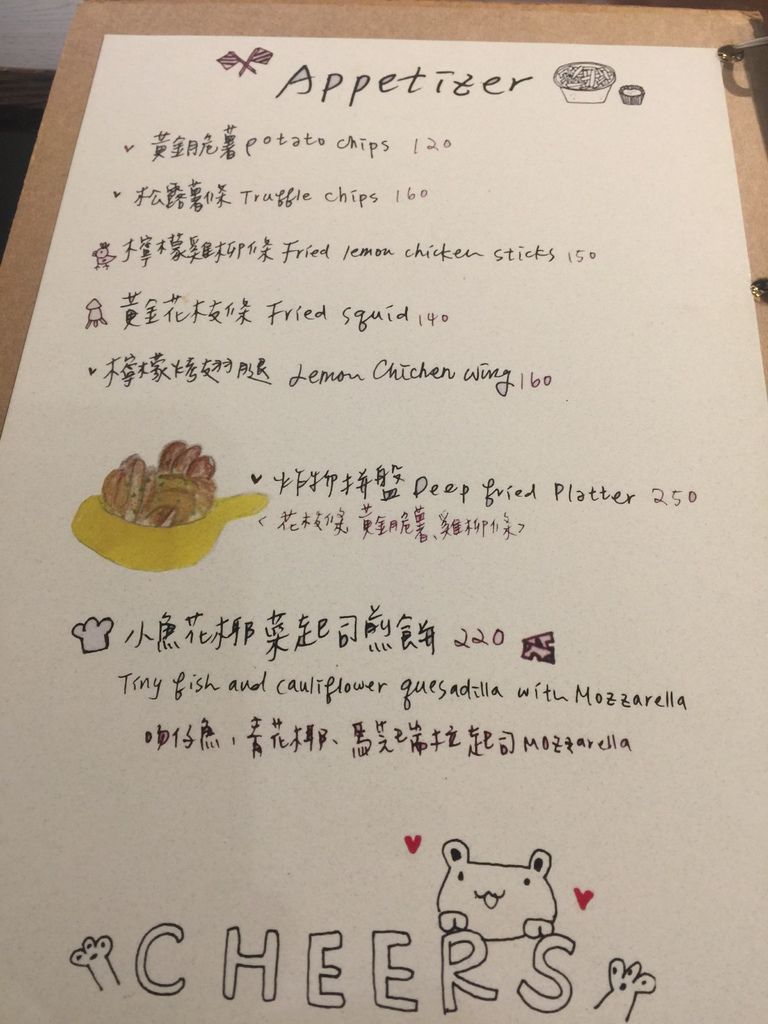 Appetizer
黃金脆薯 potato chips 120
松露薯條 Truffle chips 160
檸檬雞柳條 Fried lemon chicken sticks 150
黃金花枝條 Fried squid 140
檸檬烤翅腿 Lemon Chicken wing 160
炸物拼盤 Deep fried Platter 250
<花枝條、黃金脆薯、雞柳條>
小魚花椰菜起司煎餅 220
Tiny fish and cauliflower quesadilla with Mozzarella
吻仔魚、青花椰、馬芝瑞拉起司 Mozzarella
CHEERS